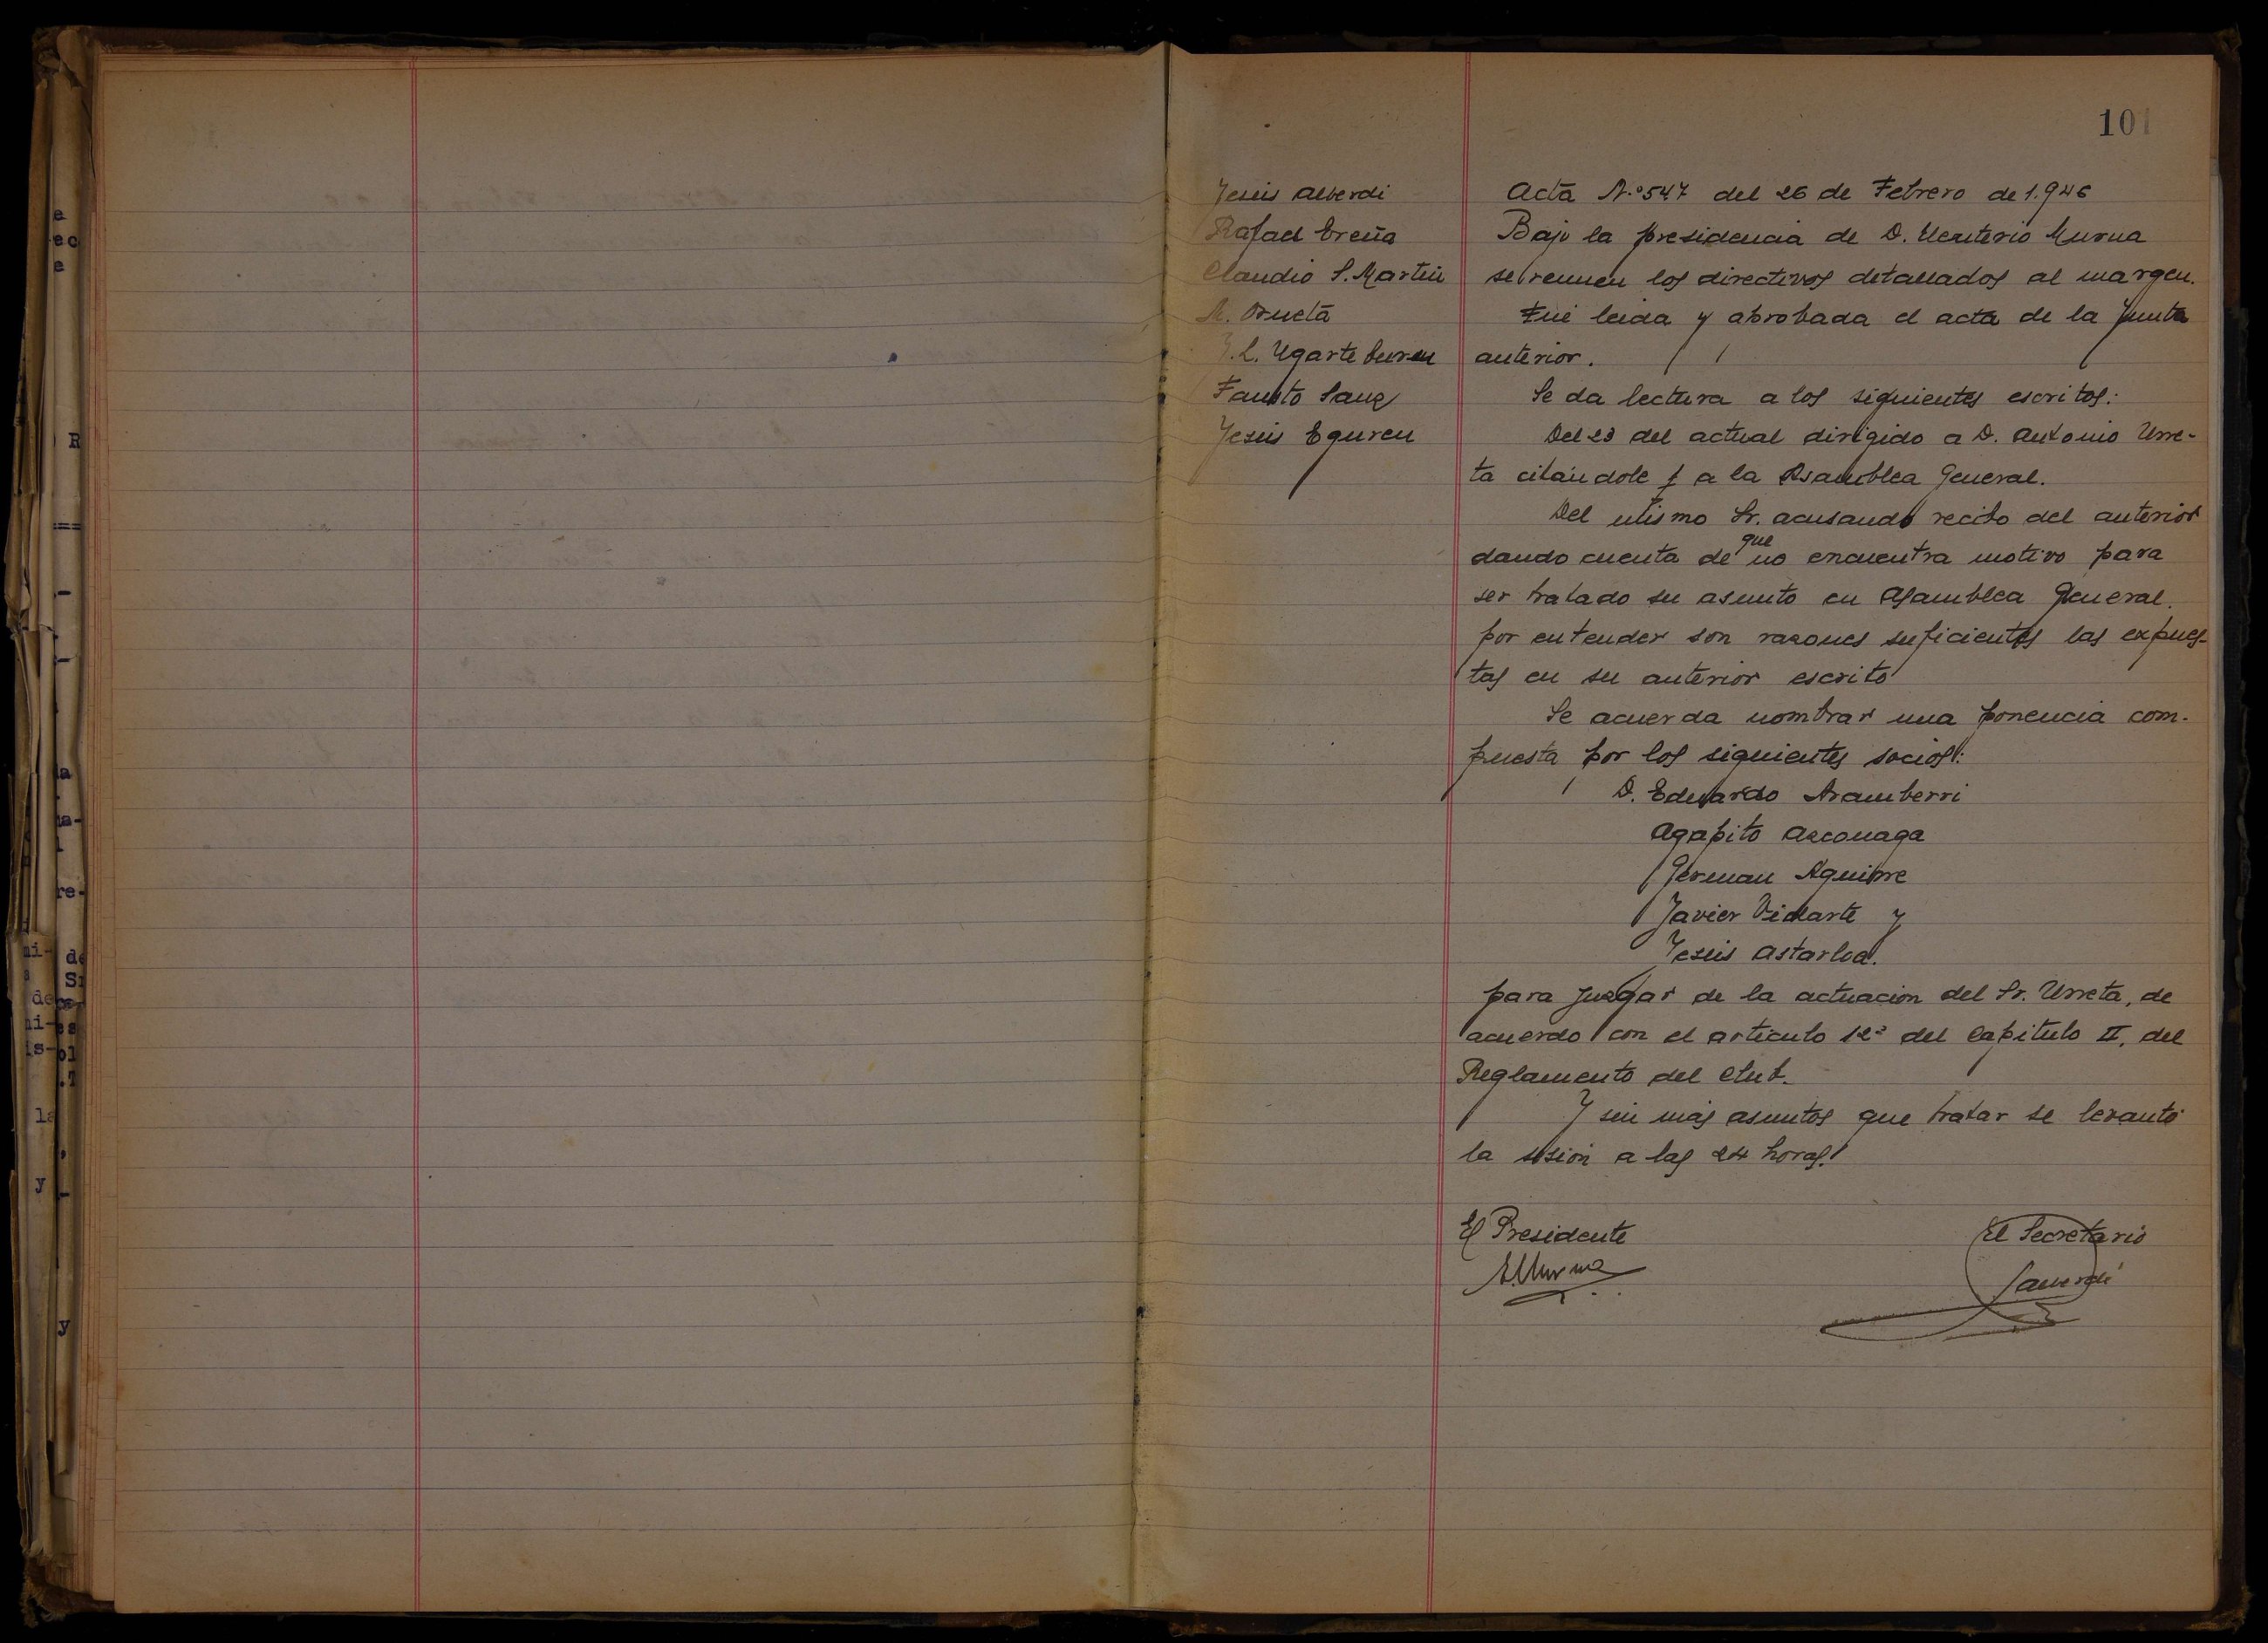 101
Jesús Alberdi
Rafael Ereña
Claudio S. Martín
M. Orueta
J.L. Ugarteburu
Fausto Sanz
Jesús Eguren
Acta N.º 547 del 26 de Febrero de 1.946
Bajo la presidencia de D. Eleuterio Murua
se reunen los directivos detallados al margen.
Fué leida y aprobada el acta de la Junta
anterior.
Se da lectura a los siguientes escritos:
Del 23 del actual dirigido a D. Antonio Urre-
ta citándole a la Asamblea General.
Del mismo Sr. acusando recibo del anterior
dando cuenta de que no encuentra motivo para
ser tratado su asunto en Asamblea General.
por entender son razones suficientes las expues-
tas en su anterior escrito
Se acuerda nombrar una ponencia com-
puesta por los siguientes socios:
D. Eduardo Aramberri
Agapito Azconaga
German Aguirre
Javier Vidarte y
Jesús Astarloa.
para juzgar de la actuación del Sr. Urreta, de
acuerdo con el artículo 12º del Capitulo II, del
Reglamento del Club.
Y sin más asuntos que tratar se levantó
la sesión a las 24 horas.
El Presidente
E. Murua
El Secretario